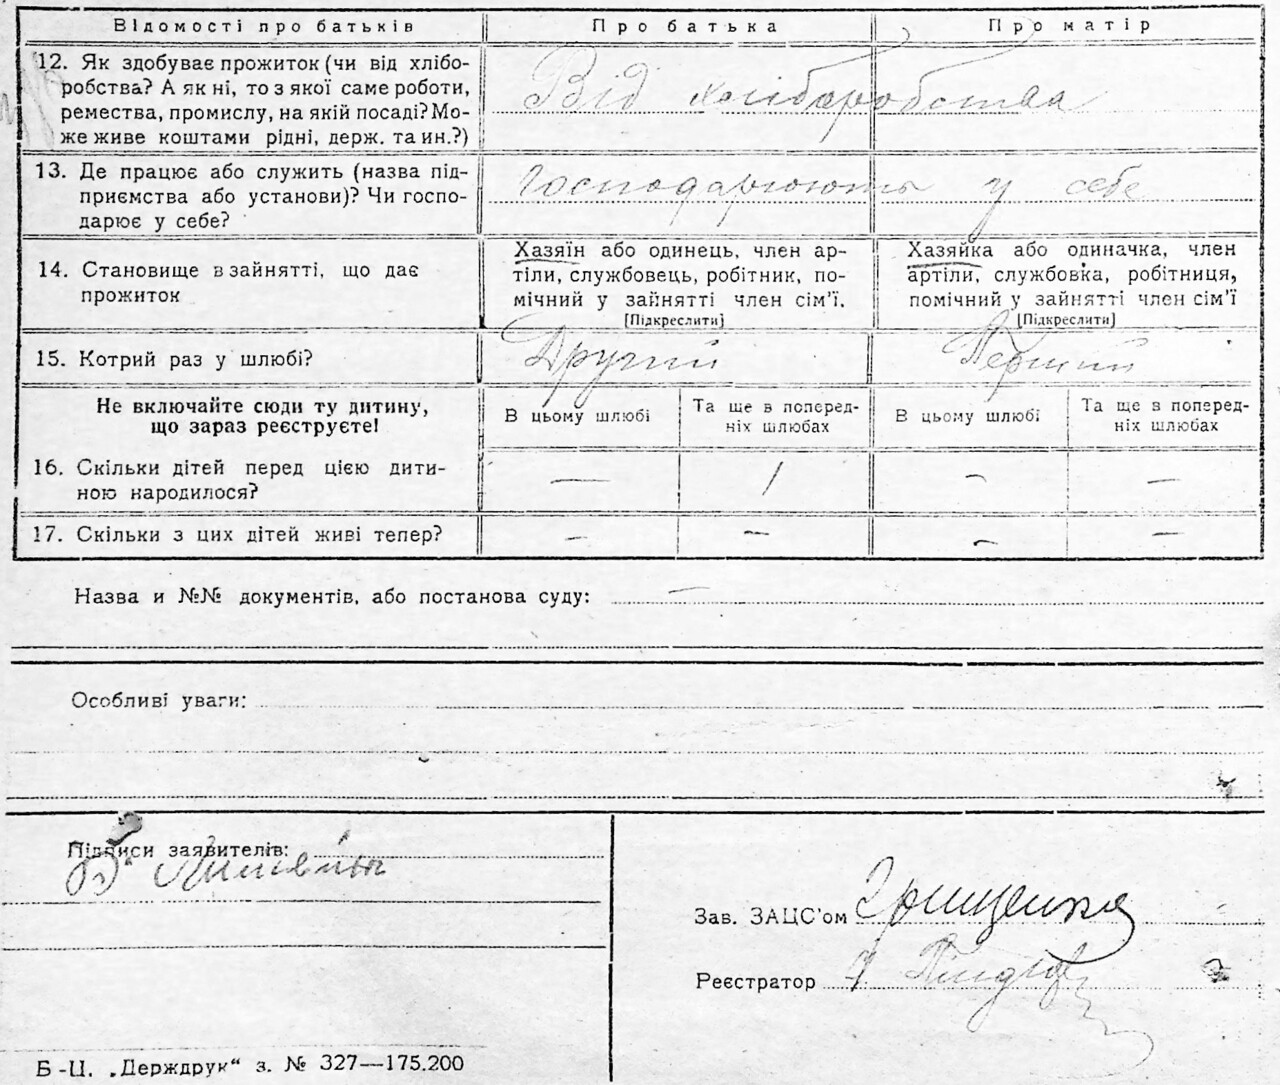 Відомості про батьків
Про батька
Про матір
12. Як здобуває прожиток (чи від хлібо-
робства? А як ні, то з якої саме роботи,
ремества, промислу, на якій посаді? Мо-
же живе коштами рідні, держ. та ин.?)
Від хлібаробства
13. Де працює або служить (назва під-
приємства або установи)? Чи госпо-
дарює у себе?
Господарюють у себе
14. Становище в зайнятті, що дає
прожиток
Хазяїн або одинець, член ар-
тіли, службовець, робітник, по-
мічний у зайнятті член сім'ї.
[Підкреслити]
Хазяйка або одиначка, член
артіли, службовка, робітниця,
помічний у зайнятті член сім'ї
[Підкреслити]
15. Котрий раз у шлюбі?
Другий
Перший
Не включайте сюди ту дитину,
що зараз реєструєте!
В цьому шлюбі
Та ще в поперед-
ніх шлюбах
В цьому шлюбі
Та ще в поперед-
ніх шлюбах
16. Скільки дітей перед цією дити-
ною народилося?
— 1 — —
17. Скільки з цих дітей живі тепер?
— — — —
Назва и №№ документів, або постанова суду: —
Особливі уваги:
Підписи заявителів:
Зав. ЗАЦС'ом Грищенко
Реєстратор
Б-Ц. „Держдрук“ з. № 327—175.200